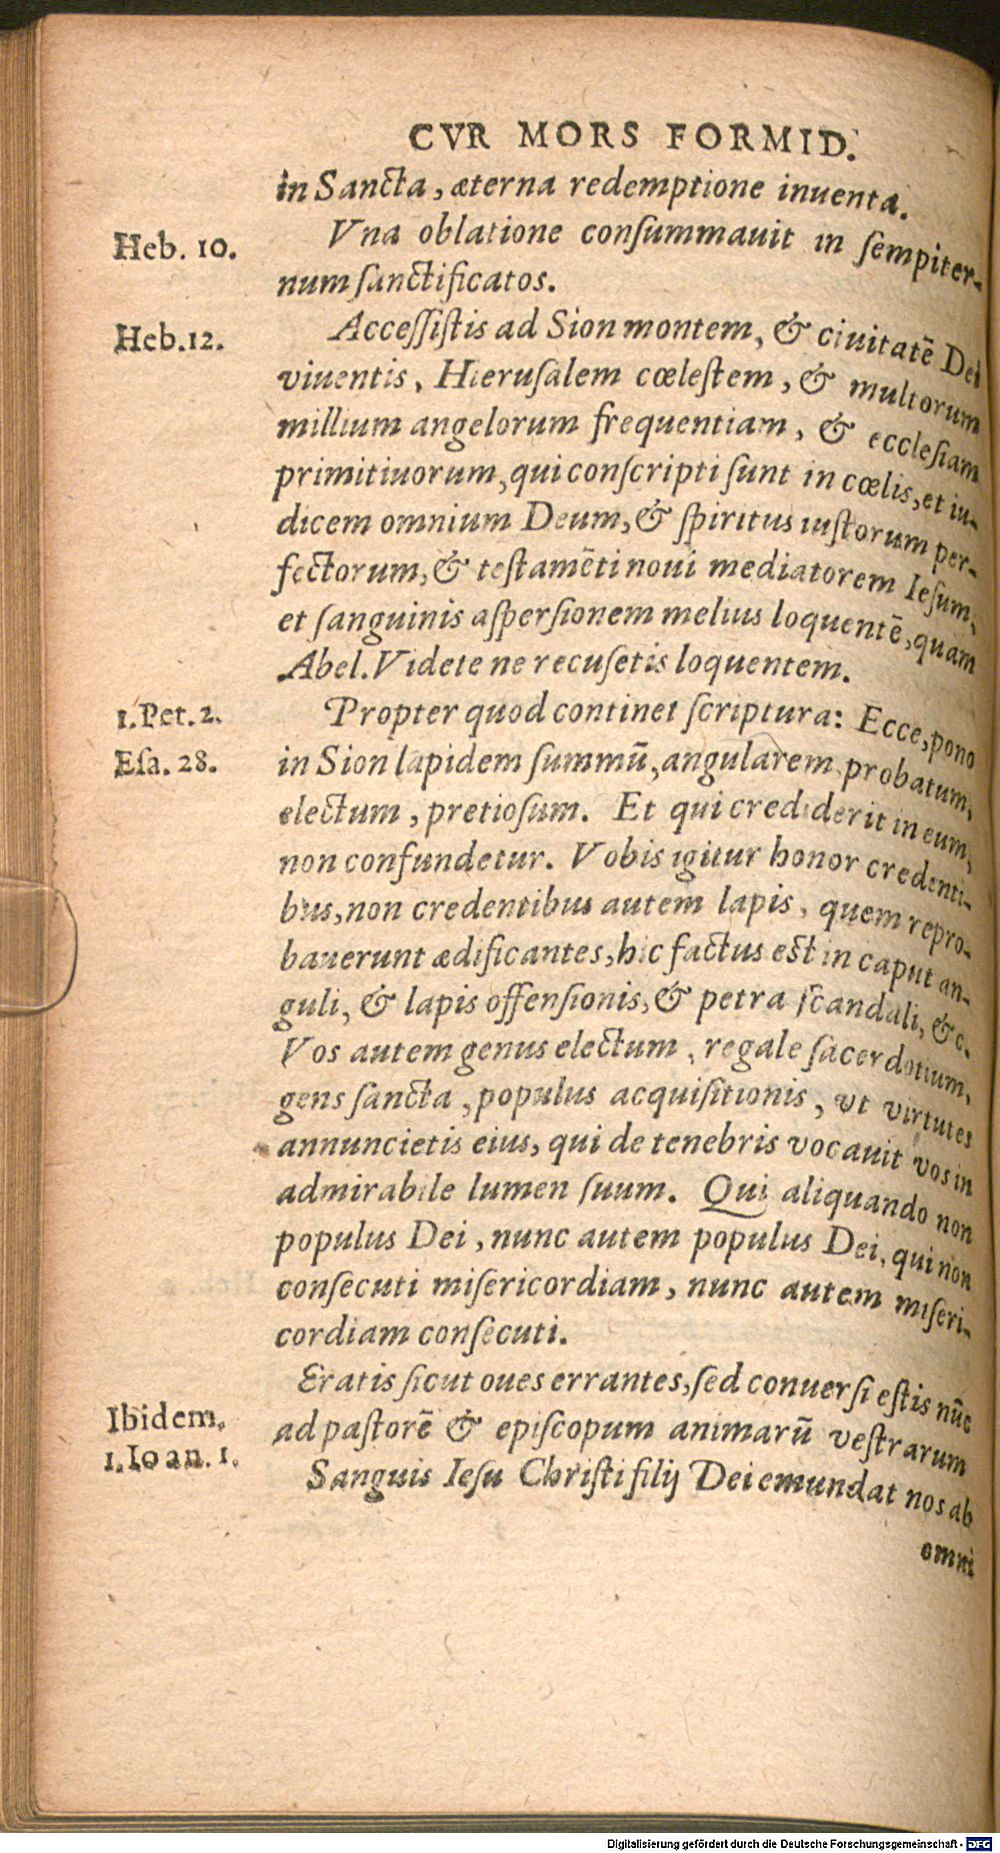 CVR MORS FORMID.
in Sancta, æterna redemptione inuenta.
Heb. 10.
Vna oblatione conſummauit in ſempiter-
num ſanctificatos.
Heb.12.
Acceſſiſtis ad Sion montem, & ciuitatē Dei
viuentis, Hieruſalem cœleſtem, & multorum
millium angelorum frequentiam, & eccleſiam
primitiuorum, qui conſcripti ſunt in cœlis, et iu-
dicem omnium Deum, & ſpiritus iuſtorum per-
fectorum, & teſtamēti noui mediatorem Ieſum,
et ſanguinis aſperſionem melius loquentē, quàm
Abel. Videte ne recuſetis loquentem.
1.Pet. 2.
Propter quod continet ſcriptura: Ecce, pono
Eſa. 28.
in Sion lapidem ſummū, angularem, probatum,
electum, pretioſum. Et qui crediderit in eum,
non confundetur. Vobis igitur honor credenti-
bus, non credentibus autem lapis, quem repro-
bauerunt ædificantes, hic factus est in caput an-
guli, & lapis offenſionis, & petra ſcandali, &c.
Vos autem genus electum, regale ſacerdotium,
gens ſancta, populus acquiſitionis, vt virtutes
annuncietis eius, qui de tenebris vocauit vos in
admirabile lumen ſuum. Qui aliquando non
populus Dei, nunc autem populus Dei, qui non
conſecuti miſericordiam, nunc autem miſeri-
cordiam conſecuti.
Eratis ſicut oues errantes, ſed conuerſi eſtis nūc
Ibidem.
ad paſtorē & epiſcopum animarū veſtrarum
1.Ioan. 1.
Sanguis Ieſu Chriſti filij Dei emundat nos ab
omni
Digitalisierung gefördert durch die Deutsche Forschungsgemeinschaft - DFG